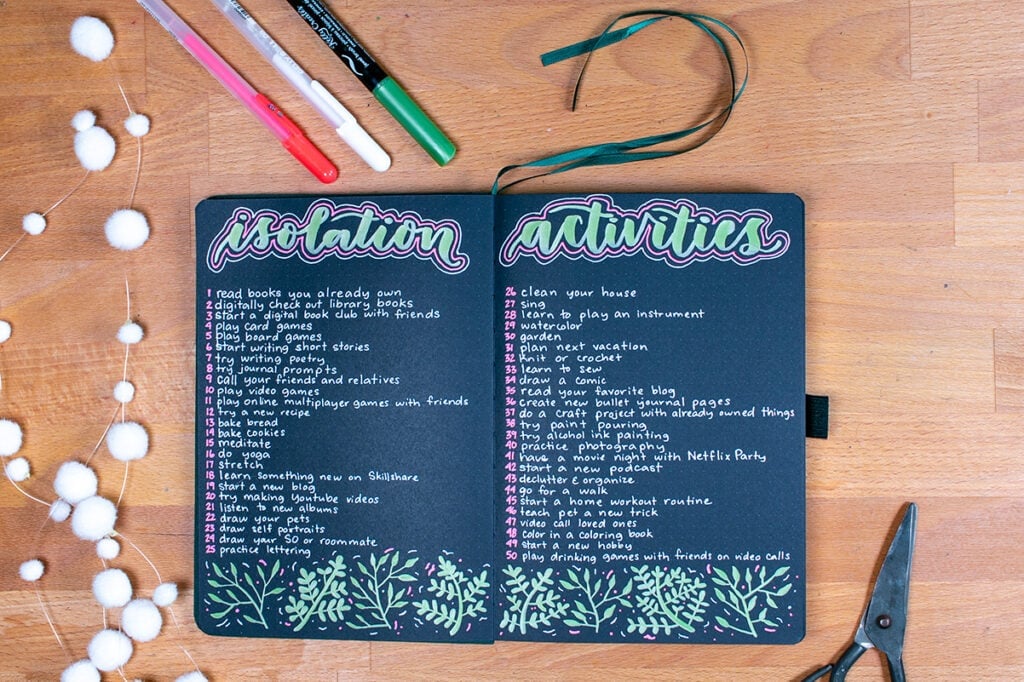 isolation
1 read books you already own
2 digitally check out library books
3 start a digital book club with friends
4 play card games
5 play board games
6 start writing short stories
7 try writing poetry
8 try journal prompts
9 call your friends and relatives
10 play video games
11 play online multiplayer games with friends
12 try a new recipe
13 bake bread
14 bake cookies
15 meditate
16 do yoga
17 stretch
18 learn something new on Skillshare
19 start a new blog
20 try making Youtube videos
21 listen to new albums
22 draw your pets
23 draw self portraits
24 draw your SO or roommate
25 practice lettering
activities
26 clean your house
27 sing
28 learn to play an instrument
29 watercolor
30 garden
31 plan next vacation
32 knit or crochet
33 learn to sew
34 draw a comic
35 read your favorite blog
36 create new bullet journal pages
37 do a craft project with already owned things
38 try paint pouring
39 try alcohol ink painting
40 practice photography
41 have a movie night with Netflix Party
42 start a new podcast
43 declutter & organize
44 go for a walk
45 start a home workout routine
46 teach pet a new trick
47 video call loved ones
48 color in a coloring book
49 start a new hobby
50 play drinking games with friends on video calls